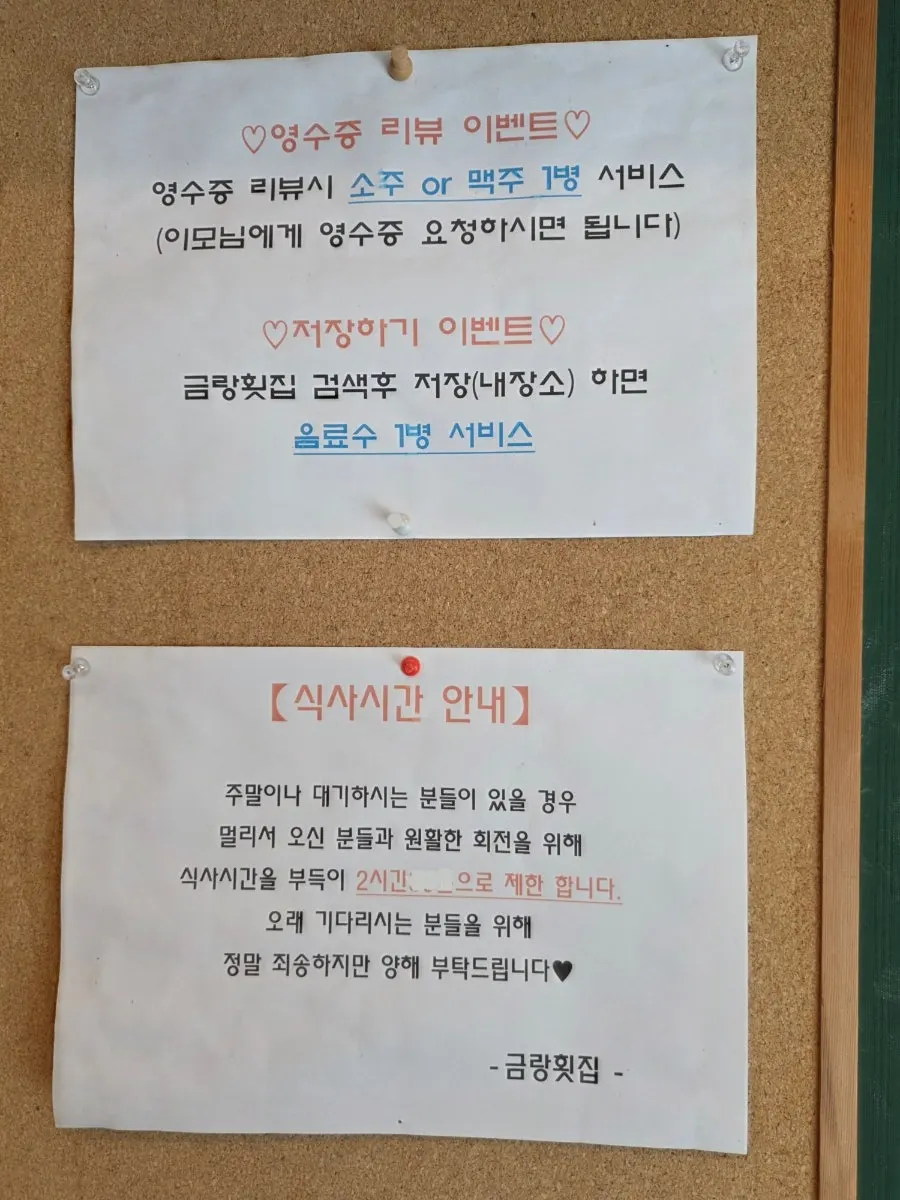 ♡영수증 리뷰 이벤트♡
영수증 리뷰시 소주 or 맥주 1병 서비스
(이모님에게 영수증 요청하시면 됩니다)
♡저장하기 이벤트♡
금랑횟집 검색후 저장(내장소) 하면
음료수 1병 서비스
【식사시간 안내】
주말이나 대기하시는 분들이 있을 경우
멀리서 오신 분들과 원활한 회전을 위해
식사시간을 부득이 2시간으로 제한 합니다.
오래 기다리시는 분들을 위해
정말 죄송하지만 양해 부탁드립니다♥
- 금랑횟집 -